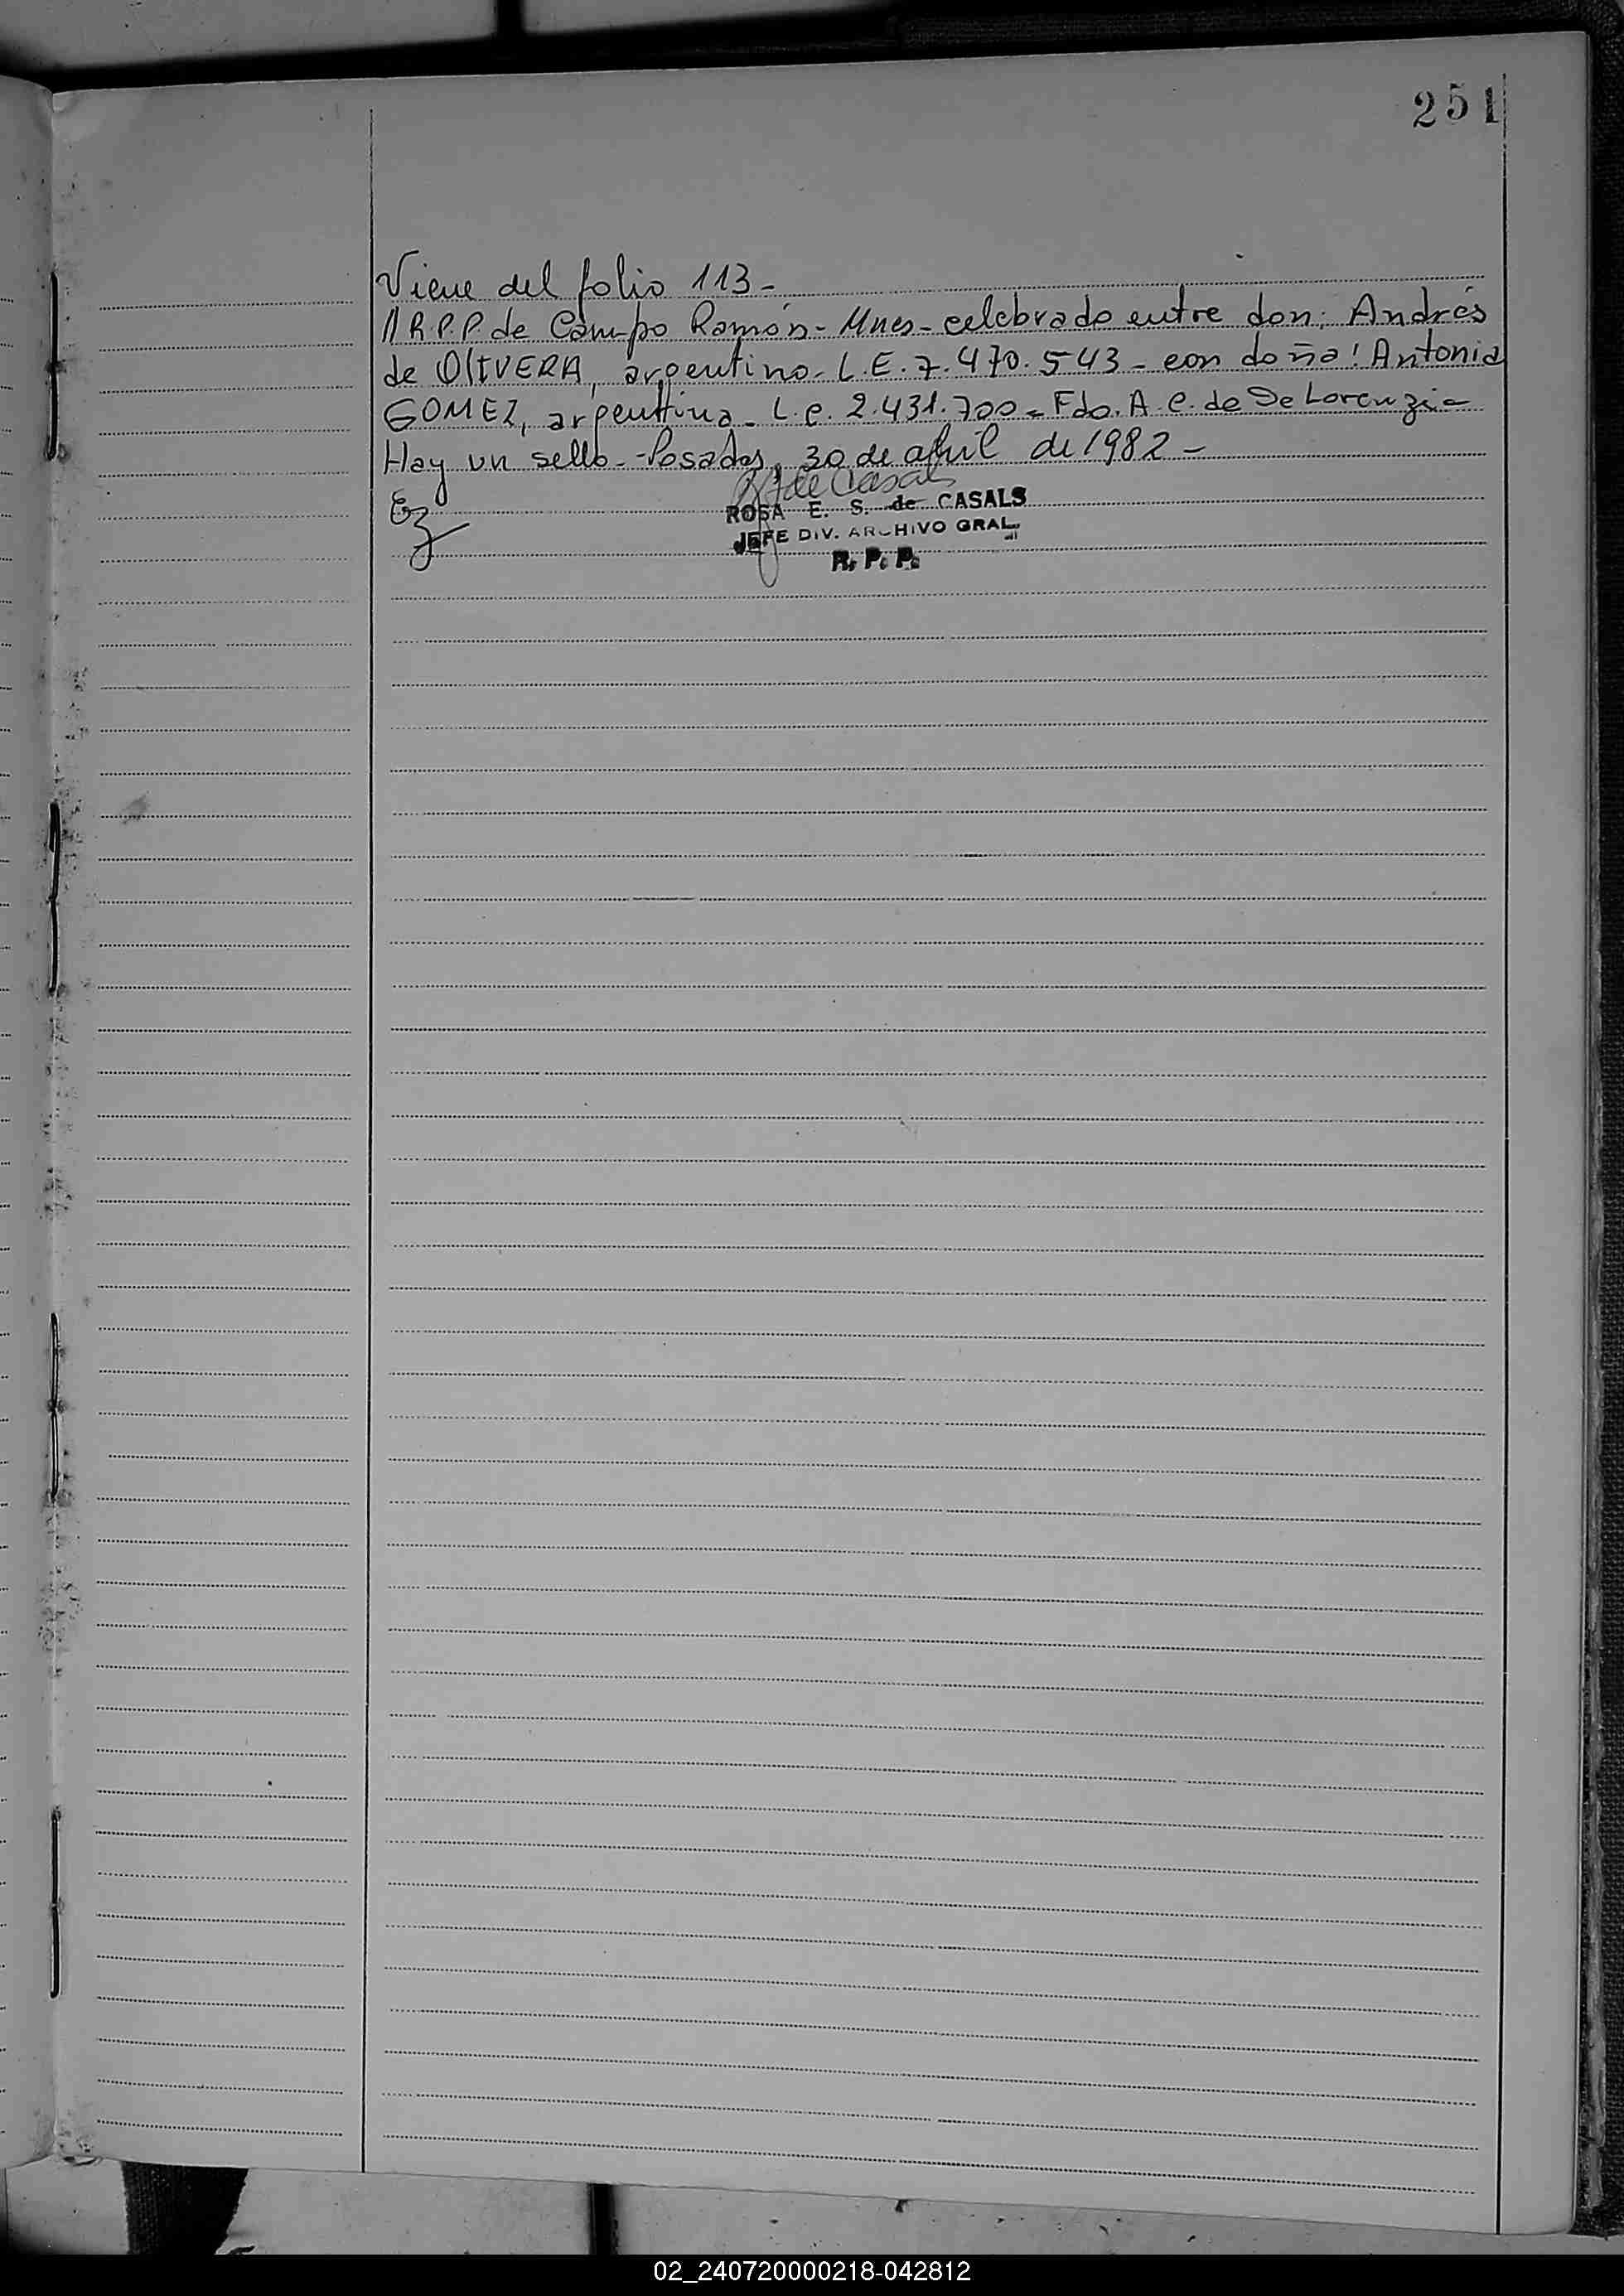 251
Viene del folio 113-
//R.P.P. de Campo Ramón- Mnes- celebrado entre don: Andrés
de OLIVERA, argentino- L.E. 7.470.543- con doña: Antonia
GOMEZ, argentina- L.C. 2.431.700- Fdo. A.C. de De Lorenzi-
Hay un sello- Posadas, 30 de abril de 1982-
de Casals
ROSA E. S. de CASALS
JEFE DIV. ARCHIVO GRAL.
R. P. P.
02_240720000218-042812